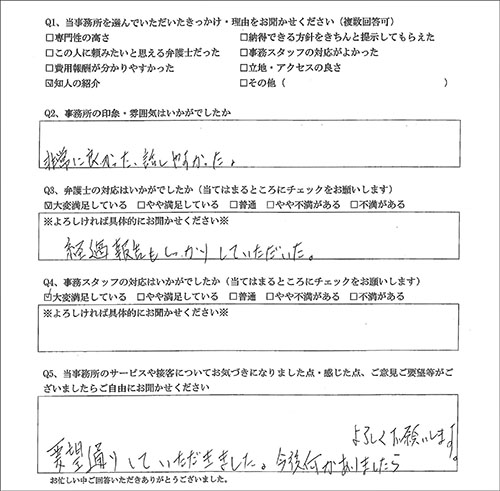 Q1、当事務所を選んでいただいたきっかけ・理由をお聞かせください（複数回答可）
□専門性の高さ □納得できる方針をきちんと提示してもらえた
□この人に頼みたいと思える弁護士だった □事務スタッフの対応がよかった
□費用報酬が分かりやすかった □立地・アクセスの良さ
☑知人の紹介 □その他（ ）
Q2、事務所の印象・雰囲気はいかがでしたか
非常に良かった、話しやすかった。
Q3、弁護士の対応はいかがでしたか（当てはまるところにチェックをお願いします）
☑大変満足している □やや満足している □普通 □やや不満がある □不満がある
※よろしければ具体的にお聞かせください※
経過報告もしっかりしていただいた。
Q4、事務スタッフの対応はいかがでしたか（当てはまるところにチェックをお願いします）
☑大変満足している □やや満足している □普通 □やや不満がある □不満がある
※よろしければ具体的にお聞かせください※
Q5、当事務所のサービスや接客についてお気づきになりました点・感じた点、ご意見ご要望等がご
ざいましたらご自由にお聞かせください
要望通りしていただきました。今後何かありましたら
よろしくお願いします。
お忙しい中ご回答いただきありがとうございました。